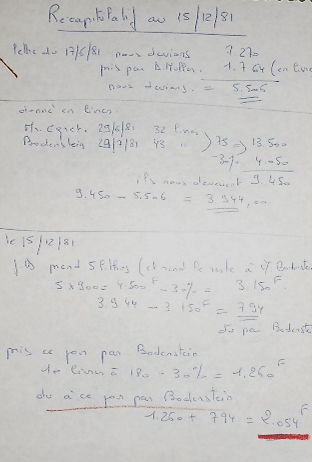 Recapitulatif au 15/12/81
lettre du 17/6/81 nous devions 7.270
pris par D. 1.764 (en livres
nous devions. = 5.506
donné en livres.
Mr. Egret. 29/6/81 32 livres
Bodenstein 29/7/81 43 " 75 = 13.500
-30% 4.050
ils nous devaient 9.450
9.450 - 5.506 = 3.944,00
le 15/12/81
J.D prend 5 lithos (et rend le reste à Bodenstein
5 x 900 = 4500F - 30% = 3.150F
3.944 - 3.150F = 794
du par Bodenstein
pris ce jour par Bodenstein
10 livres à 180 - 30% = 1.260F
du à ce jour par Bodenstein
1.260 + 794 = 2.054F